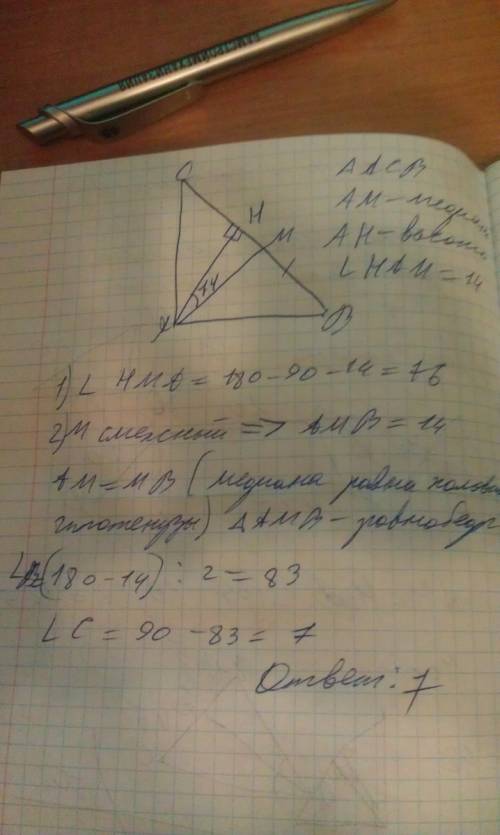 C
H
M
14
A
B
ΔACB
AM-медиан
AH-высота
∠HAM=14
1) ∠ HMA = 180-90-14=76
2) M смежный => AMB = 14
AM=MB (медиана равна полови
гипотенузы) ΔAMB-равнобедр
(180-14) : 2 = 83
∠C = 90 - 83 = 7
Ответ: 7